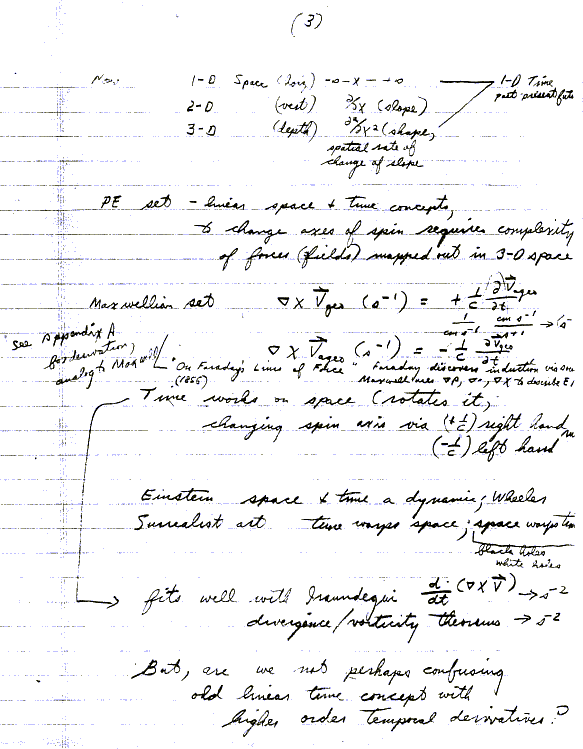 (3)
Now 1-D Space (long) -o-x--o 1-D Time
past-present-futu
2-D (vert) ∂/∂x (slope)
3-D (depth) ∂²/∂x² (shape,
spatial rate of
change of slope
PE set - linear space & time concepts,
to change axes of spin requires complexity
of forces (fields) mapped out in 3-D space
Maxwellian set ∇ x V⃗geo (s⁻¹) = + 1/c ∂V⃗ageo/∂t
1/cm s⁻¹ cm s⁻¹/s⁺¹ → s⁻
∇ x V⃗ageo (s⁻¹) = - 1/c ∂V⃗geo/∂t
See Appendix A
for derivation,
analog to Maxwell
"On Faraday's Lines of Force" Faraday discovers induction via
(1856) Maxwell uses ∇P, ∇·, ∇X to describe E
Time works on space (rotates it,
changing spin axis via (+1/c) right hand
(-1/c) left hand
Einstein space & time a dynamic; Wheeler
Surrealist art time warps space; space warps tim
black holes
white holes
fits well with d/dt (∇ x V⃗) → s⁻²
divergence/vorticity theorems → s⁻²
But, are we not perhaps confusing
old linear time concept with
higher order temporal derivatives?